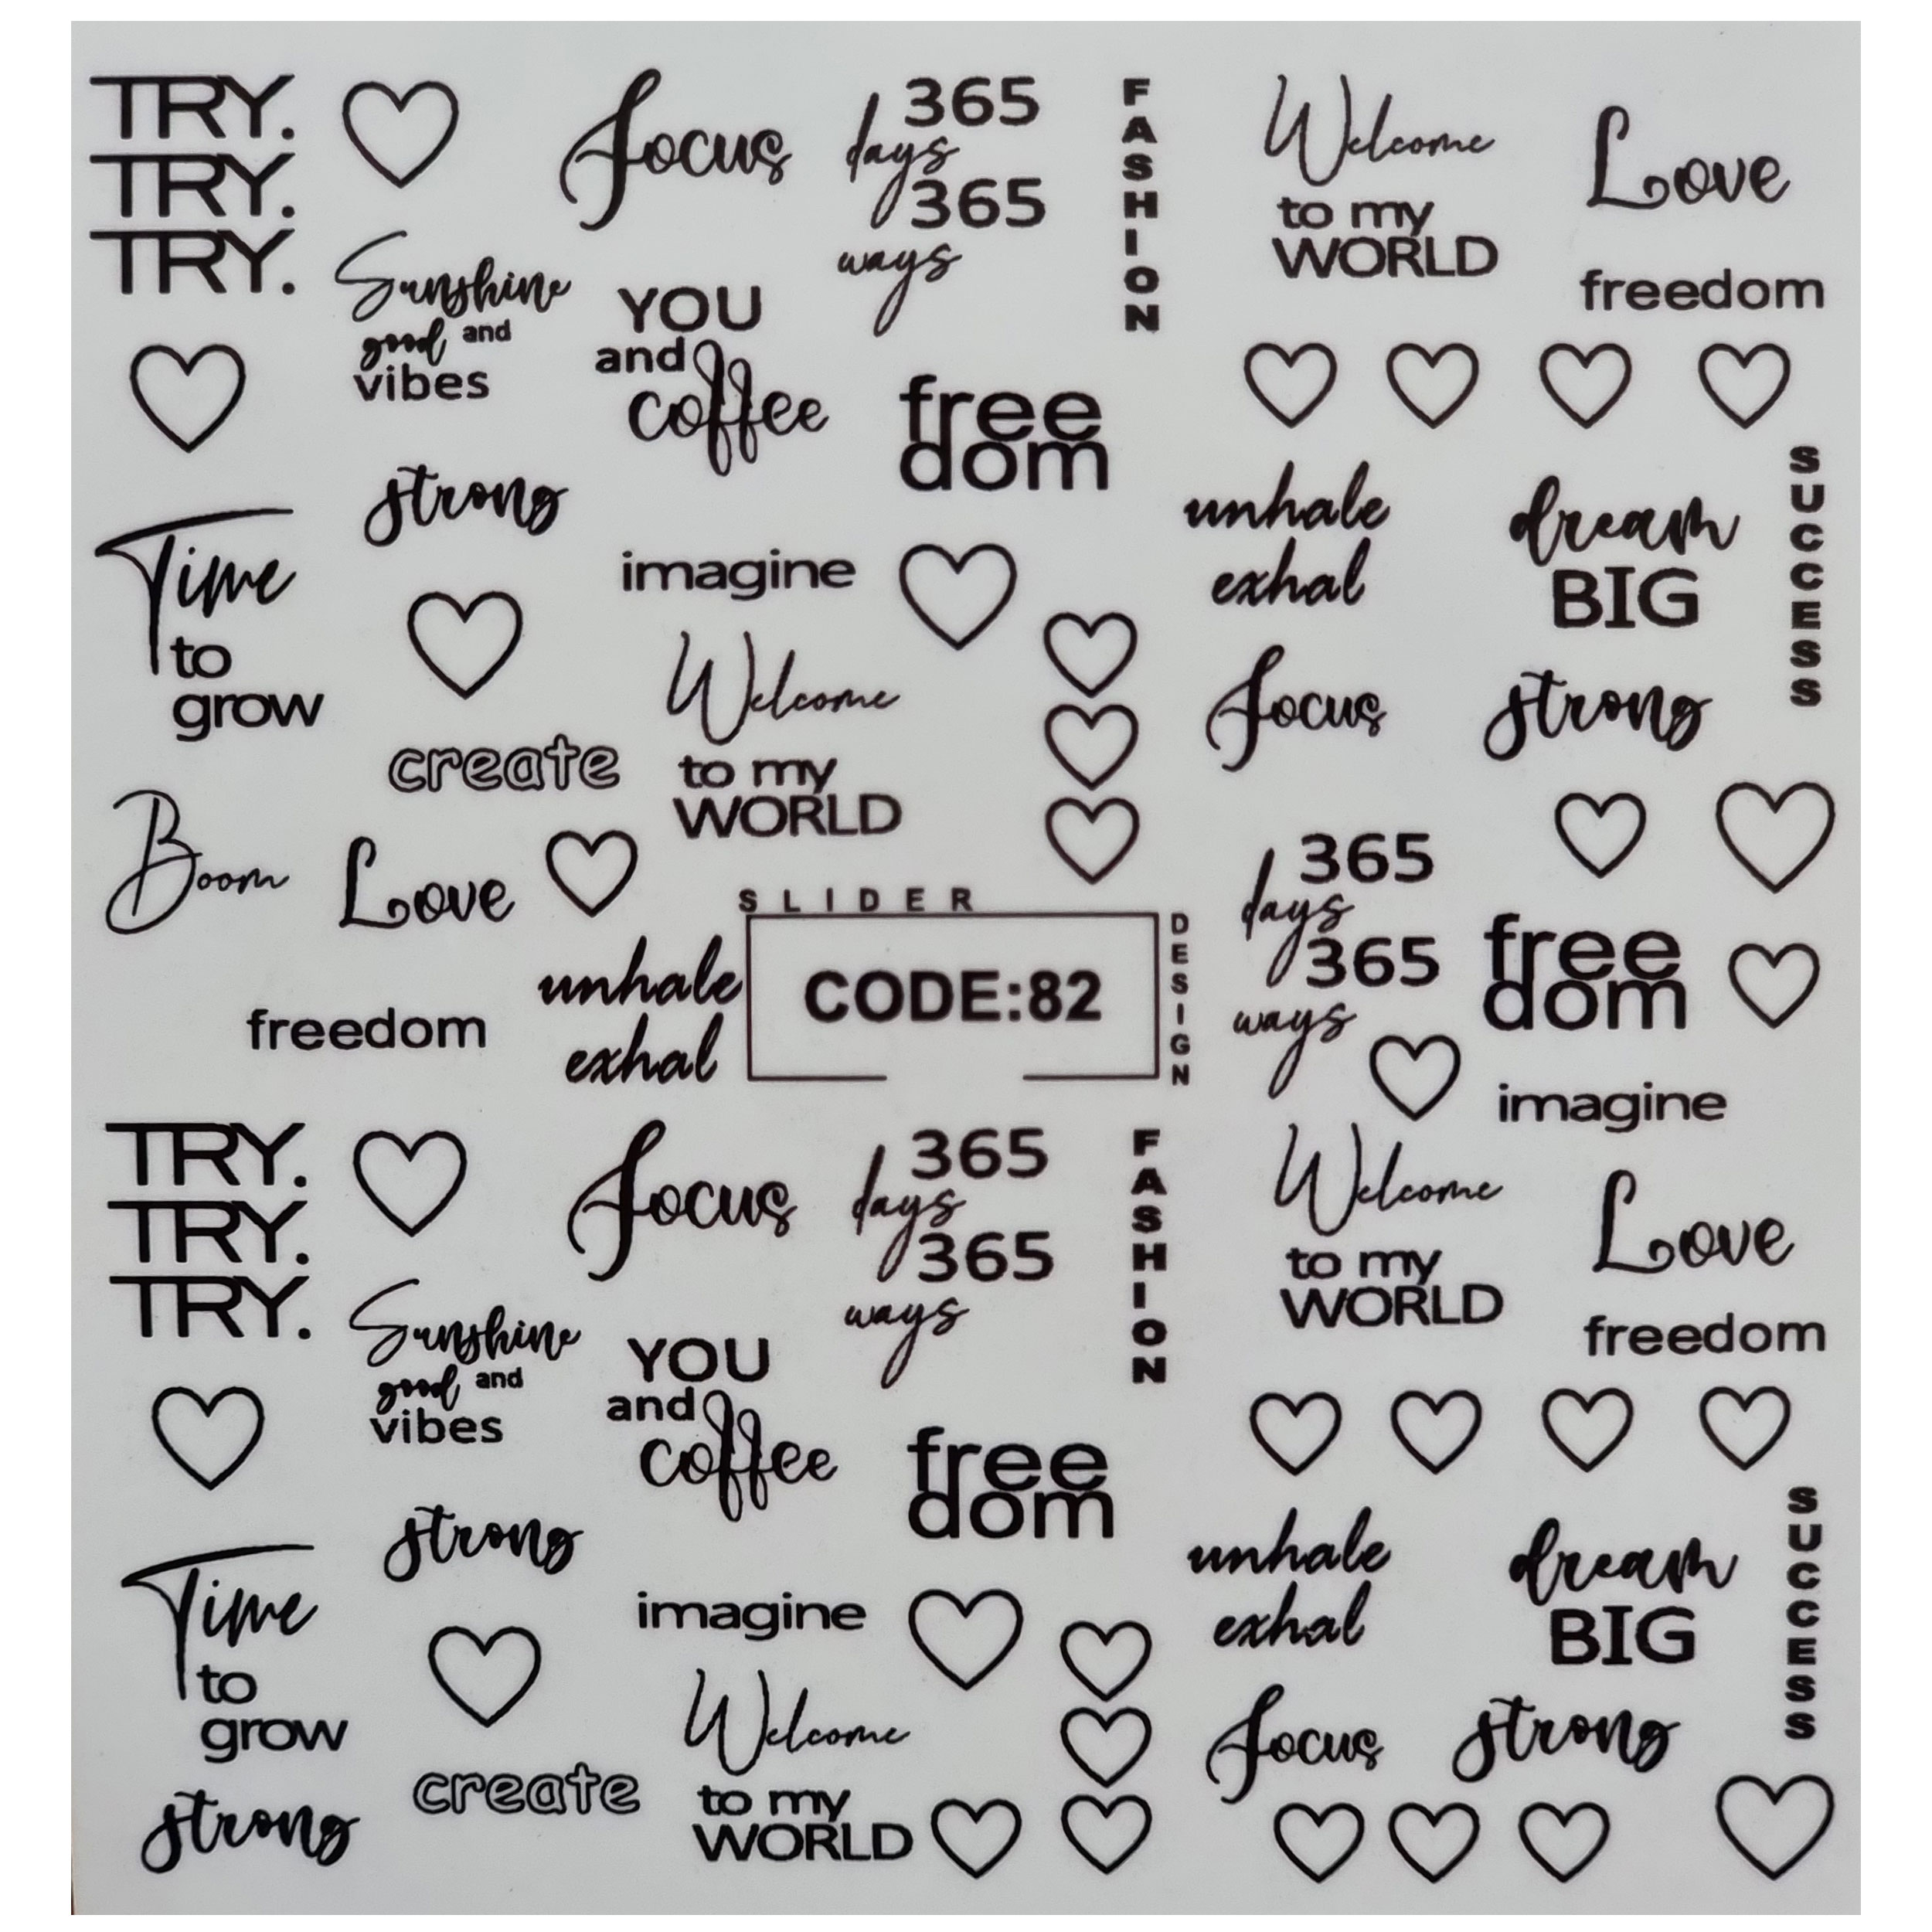 TRY.
TRY.
TRY.
focus
365
days
365
ways
FASHION
Welcome
to my
WORLD
Love
freedom
Sunshine
good and
vibes
YOU
and
coffee
free
dom
strong
unhale
exhal
dream
BIG
SUCCESS
Time
to
grow
imagine
Welcome
to my
WORLD
focus
strong
create
Boom
Love
365
days
365
ways
free
dom
SLIDER
CODE:82
DESIGN
unhale
exhal
freedom
imagine
TRY.
TRY.
TRY.
focus
365
days
365
ways
FASHION
Welcome
to my
WORLD
Love
freedom
Sunshine
good and
vibes
YOU
and
coffee
free
dom
strong
unhale
exhal
dream
BIG
SUCCESS
Time
to
grow
imagine
Welcome
to my
WORLD
focus
strong
create
strong